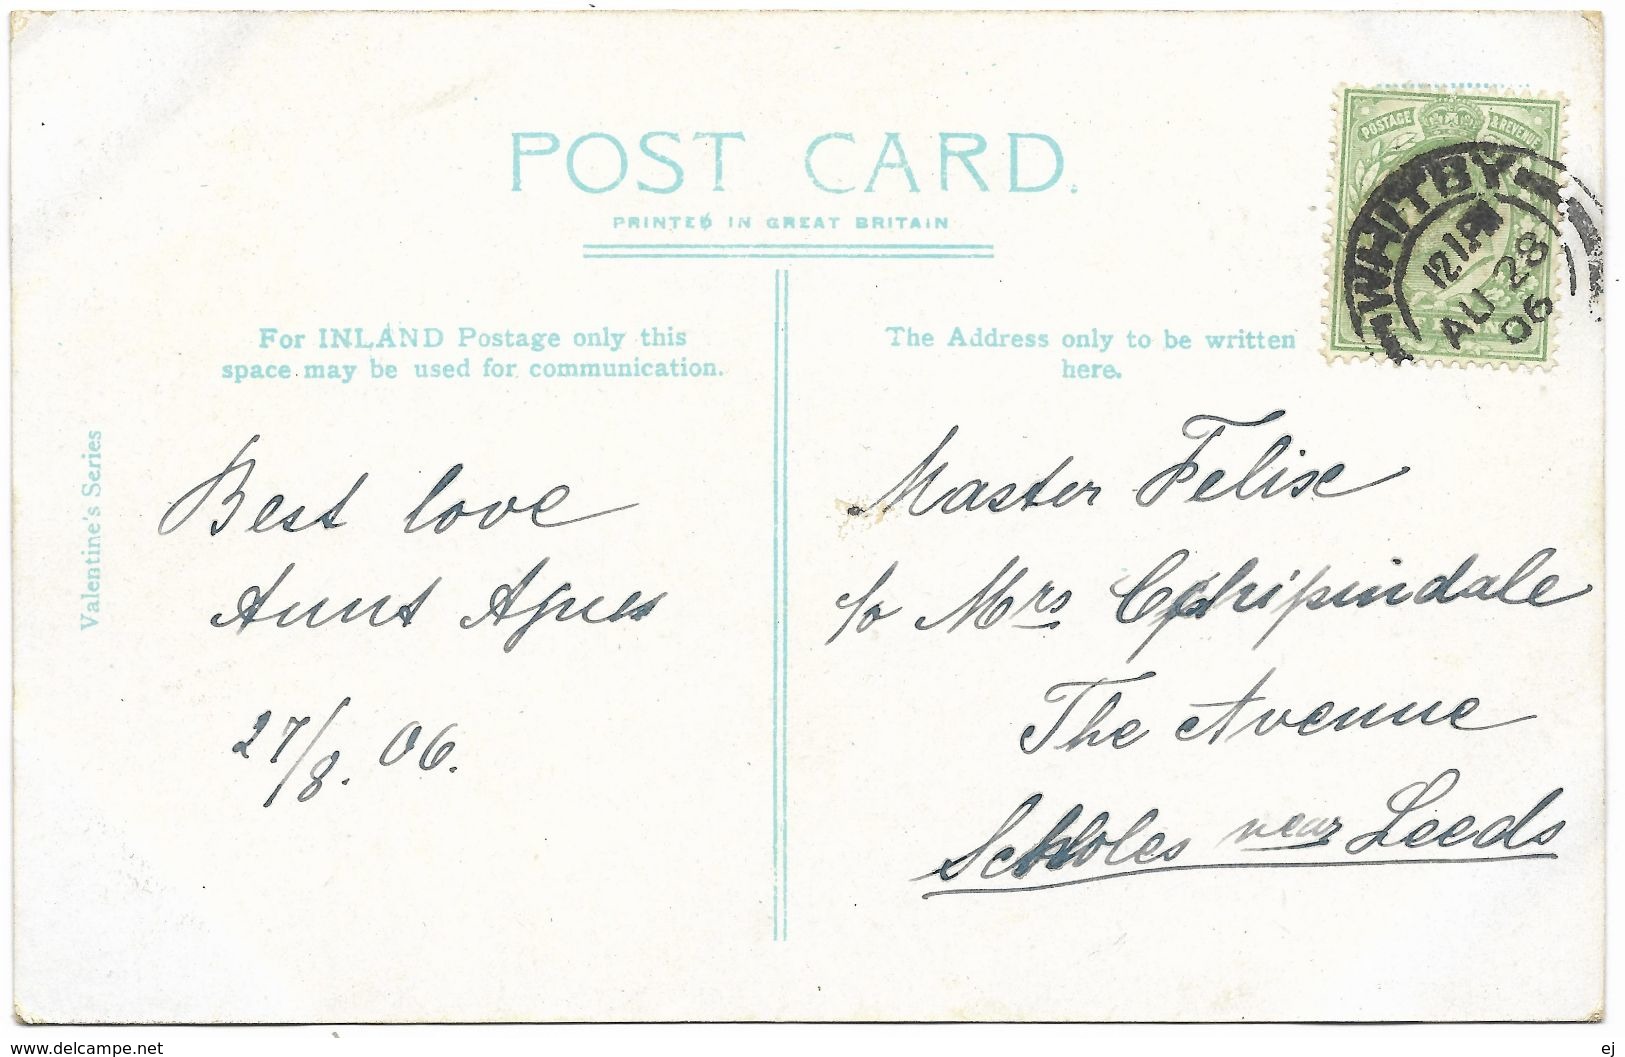 POST CARD.
PRINTED IN GREAT BRITAIN
For INLAND Postage only this
space may be used for communication.
The Address only to be written
here.
Valentine's Series
Best love
Aunt Agnes
27/8. 06.
Master Felix
c/o Mrs Chipindale
The Avenue
Scholes near Leeds
POSTAGE & REVENUE
WHITBY
AU 28
06
www.delcampe.net
ej